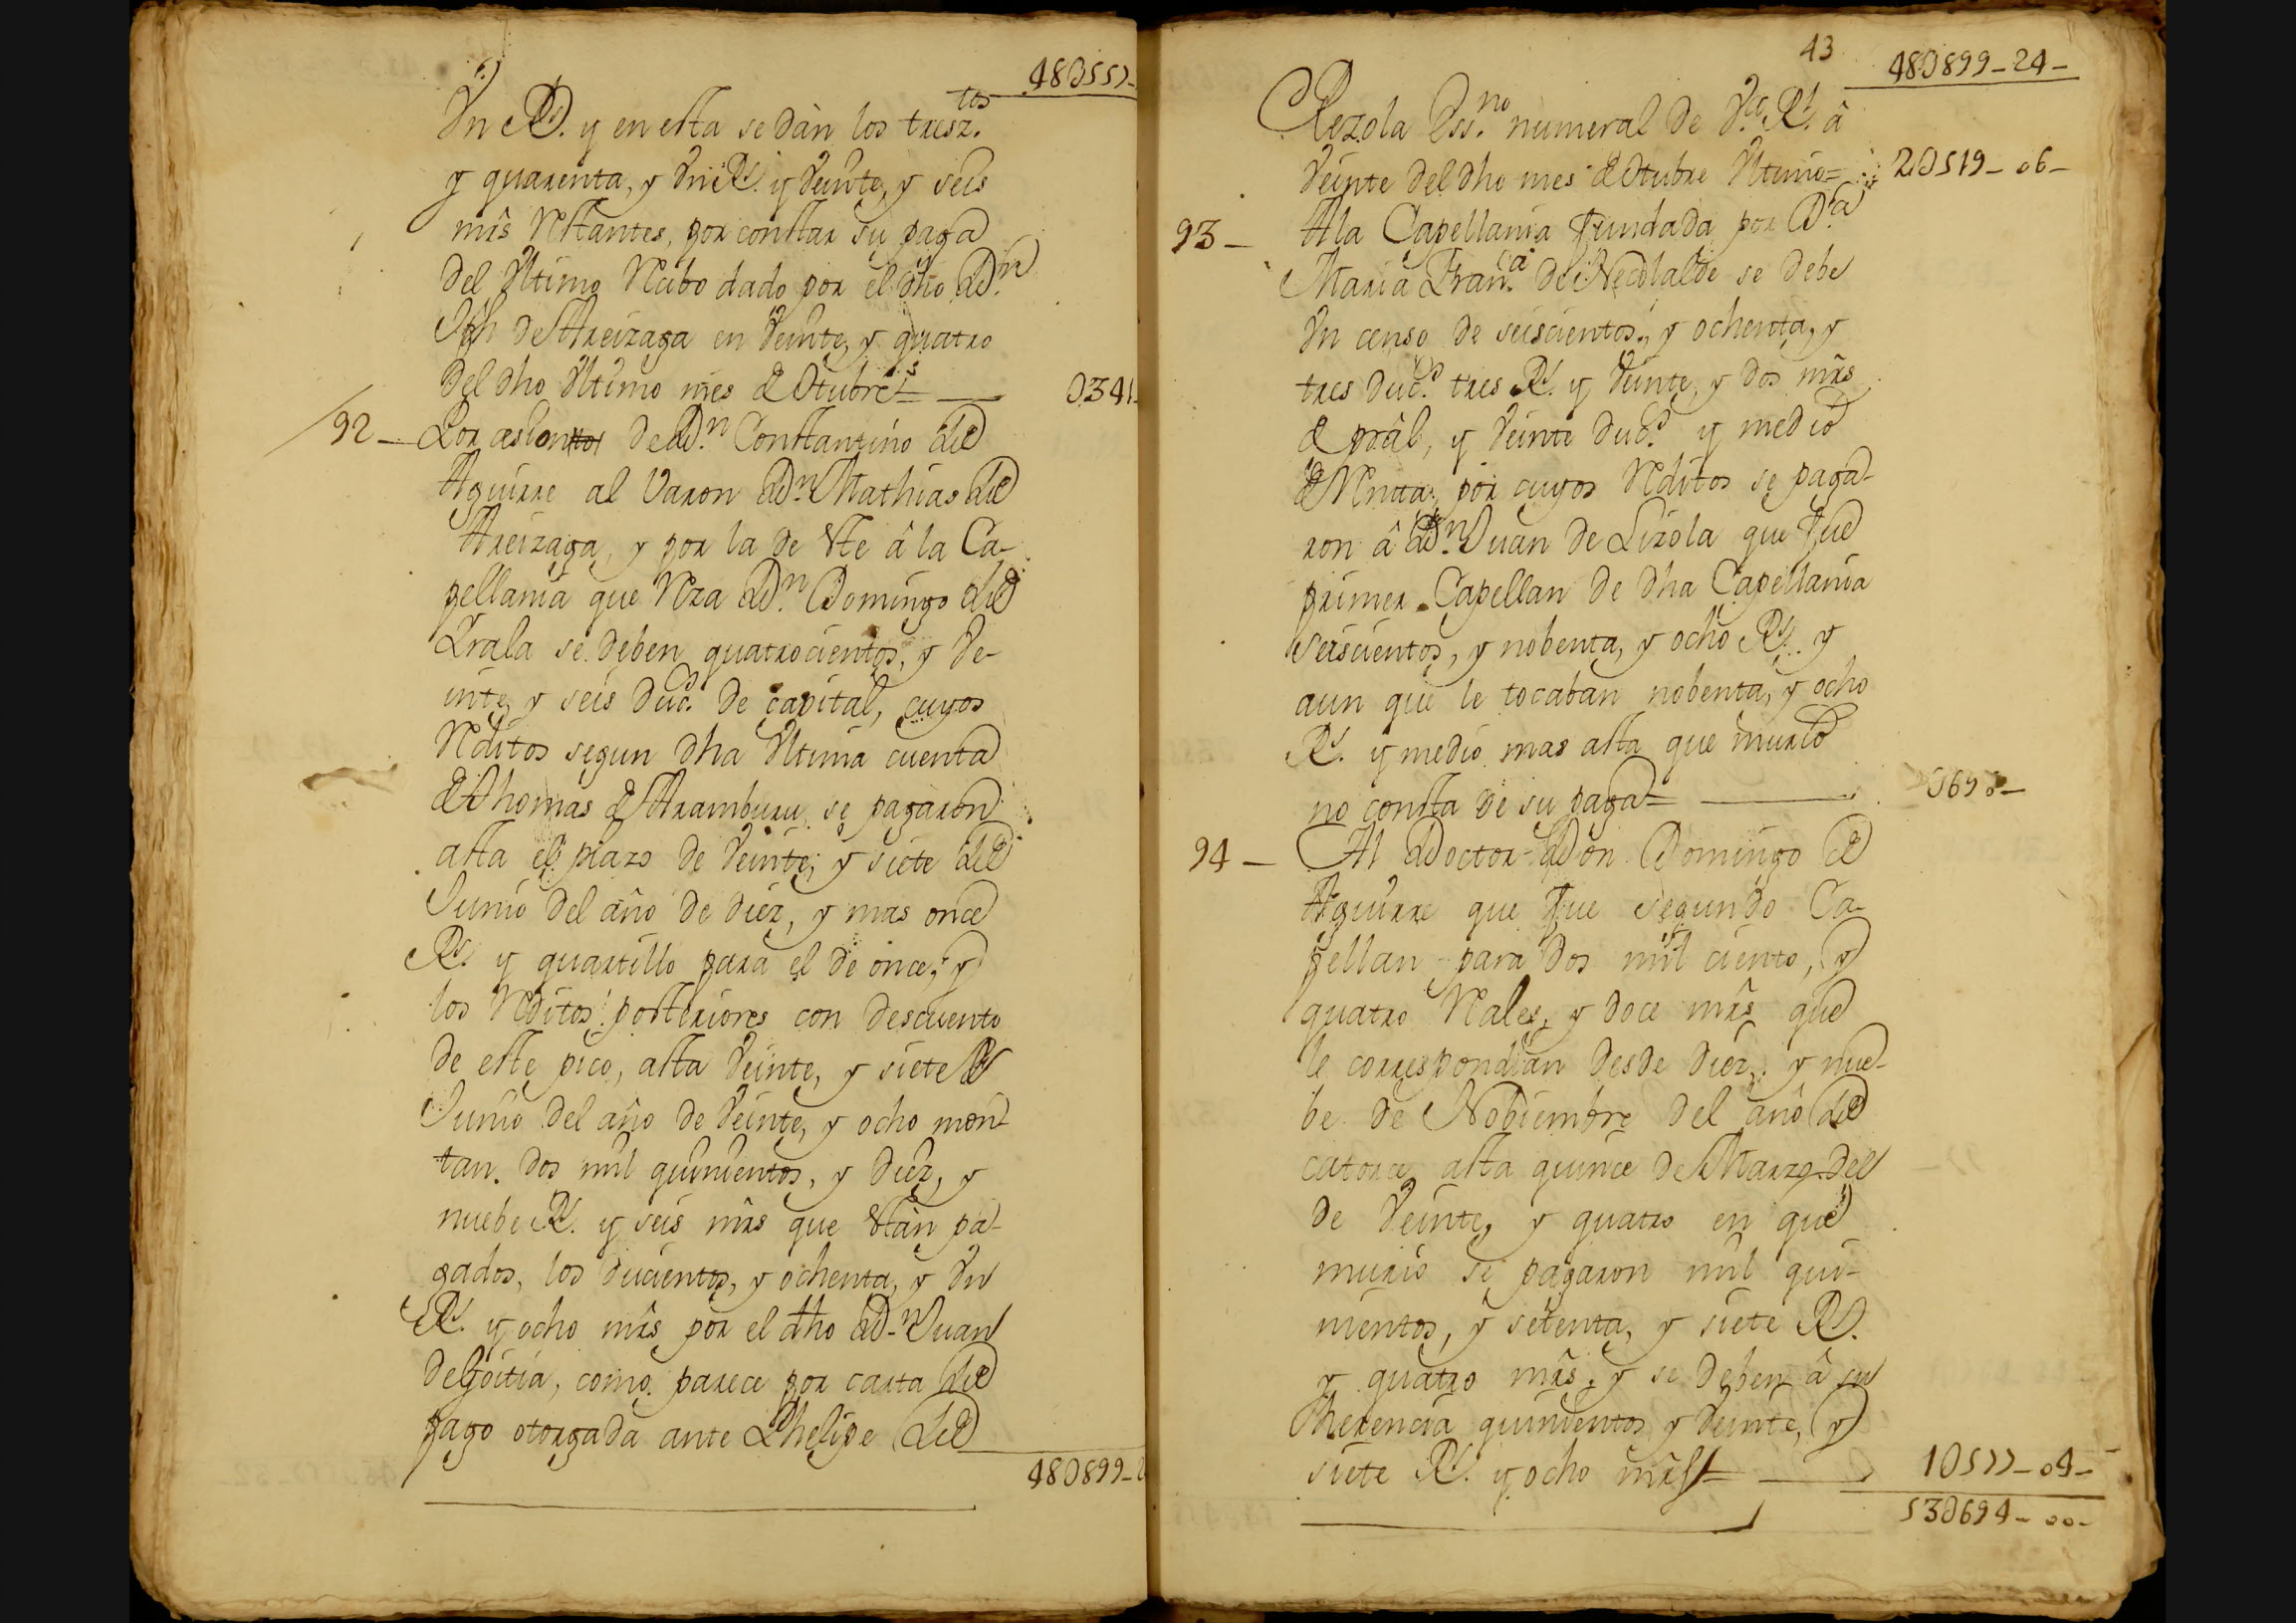 48U557-
Un R.s y en esta se dan los tresz.tos
y quarenta, y Un R.s y Veinte, y seis
mrs Restantes, por constar su paga
del Ultimo Recibo dado por el dho D.n
Jph de Areizaga en Veinte, y quatro
del dho Ultimo mes de Otubre=
U341-
92- Por asion de D.n Constantino de
Aguirre al Varon D.n Mathias de
Areizaga, y por la de este â la Ca-
pellania que Reza D.n Domingo de
Yrala se deben quatrocientos, y Ve-
inte, y seis duc.s de capital, cuyos
Reditos segun dha Ultima cuenta
de Thomas de Aramburu se pagaron
asta el plazo de Veinte, y siete de
Junio del año de diez, y mas once
R.s y quartillo para el de once, y
los Reditos posteriores con descuento
de este pico, asta Veinte, y siete de
Junio del año de Veinte, y ocho mon-
tan dos mil quinientos, y diez, y
nuebe R.s y seis mrs que estàn pa-
gados, los ducientos, y ochenta, y Un
R.s y ocho mrs por el dho D.n Juan
de Goitia, como parece por carta de
pago otorgada ante Phelipe de
48U899-2
43
48U899-24-
Rezola Ess.no numeral de V.a R.l â
Veinte del dho mes de Otubre Ultimo=
2U519-06-
93- A la Capellania fundada por D.a
Maria Fran.ca de Necolalde se debe
Un censo de seiscientos, y ochenta, y
tres duc.s tres R.s y Veinte, y dos mrs
de prâl, y Veinte duc.s y medio
de Renta, por cuyos Reditos se paga-
ron â D.n Juan de Lizola que fue
primer Capellan de dha Capellania
seiscientos, y nobenta, y ocho R.s y
aun que le tocaban nobenta, y ocho
R.s y medio mas asta que murio
no consta de su paga=
U698-
94- Al Doctor Don Domingo de
Aguirre que fue segundo Ca-
pellan para dos mil ciento, y
quatro Reales, y doce mrs que
le correspondian desde diez, y nue-
be de Nobiembre del año de
catorce, asta quince de Marzo del
de Veinte, y quatro en que
murio se pagaron mil qui-
nientos, y setenta, y siete R.s
y quatro mrs, y se deben â su
herencia quinientos y Veinte, y
siete R.s y ocho mrs=
1U577-04-
53U694-00-